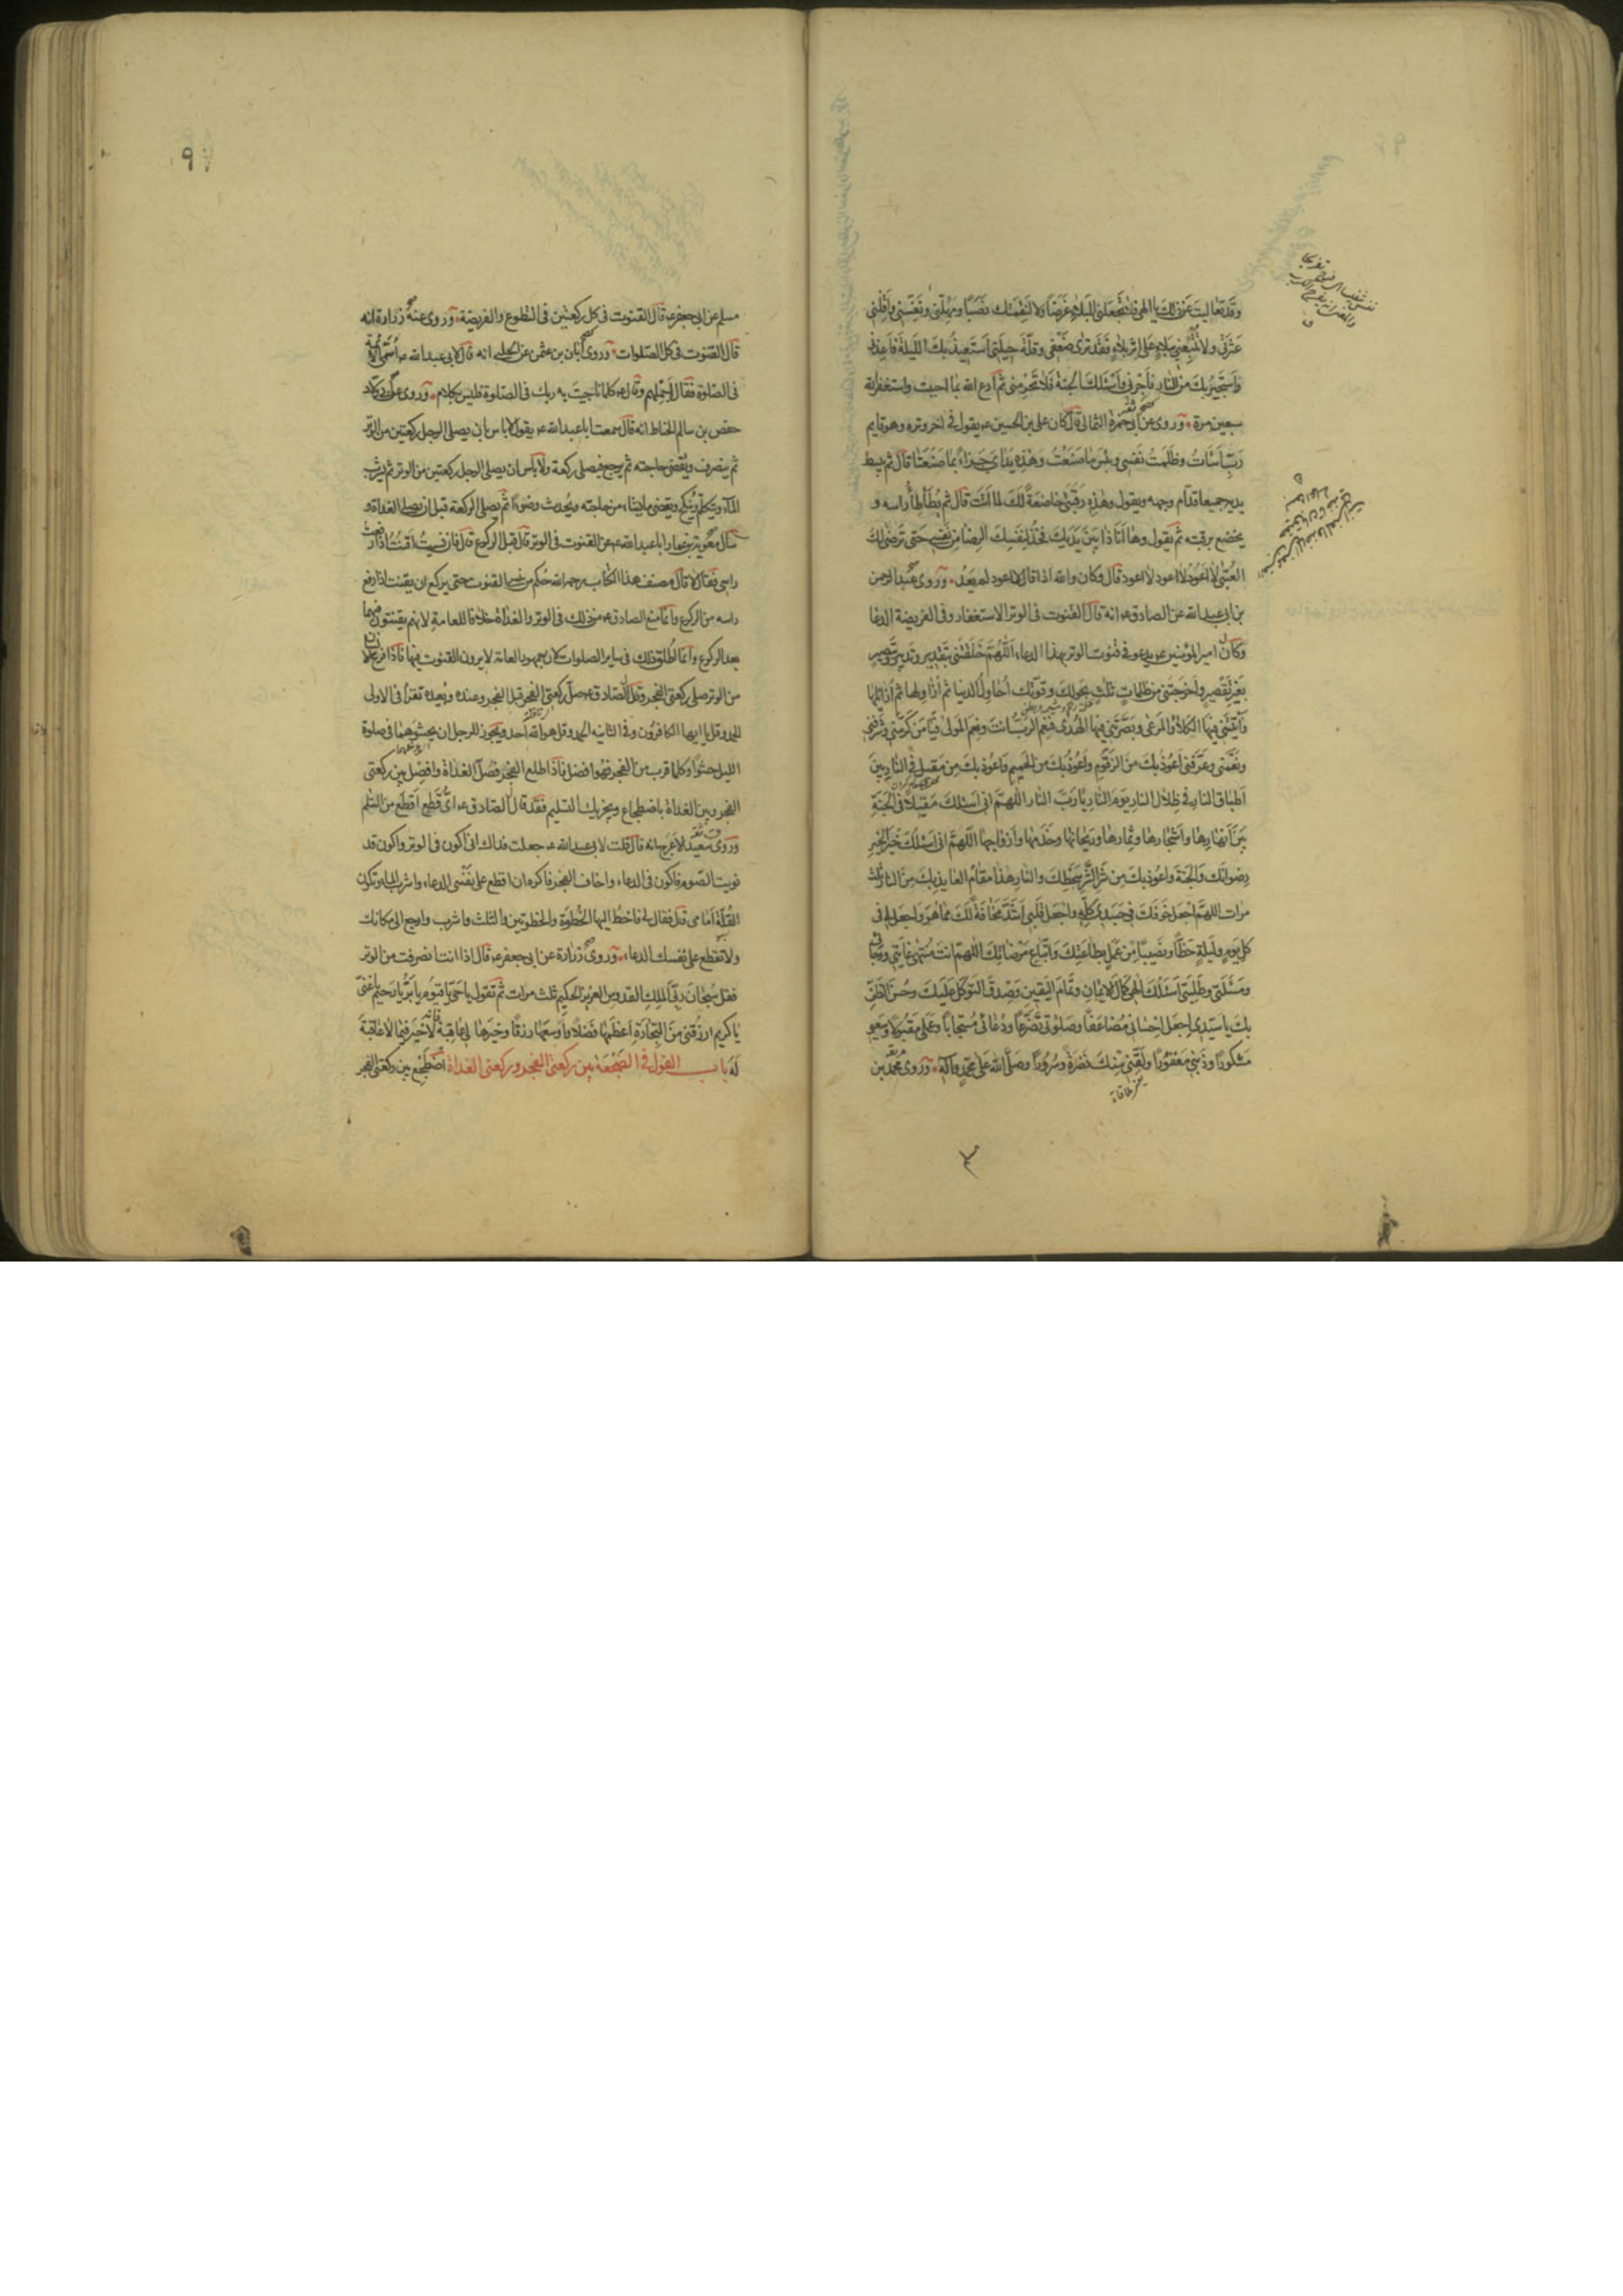 وقد تعاليت عن ذلك يا الهي فلا تجعلني للبلاء غرضا ولا لنقمتك نصبا ومهلني ونفسني واقلني
عثرتي ولا تتبعني ببلاء على اثر بلاء فقد ترى ضعفي وقلة حيلتي استعيذ بك الليلة فاعذني
واستجير بك من النار فاجرني واسئلك الجنة فلا تحرمني ثم ادع الله بما احببت واستغفر الله
سبعين مرة وروى عن ابي حمزة الثمالي قال كان علي بن الحسين ع يقول في اخر وتره وهو قايم
رب اسأت وظلمت نفسي وبئس ما صنعت وهذه يداي جزاء بما صنعتا قال ثم يبسط
يديه جميعا قدام وجهه ويقول وهذه رقبتي خاضعة لك لما اتت قال ثم يطأطأ راسه و
يخضع برقبته ثم يقول وها انا ذا بين يديك فخذ لنفسك الرضا من نفسي حتى ترضى لك
العتبى لا اعود لا اعود لا اعود قال وكان والله اذا قال لا اعود لم يعد وروى عبد الرحمن
بن ابي عبد الله عن الصادق ع انه قال القنوت في الوتر الاستغفار وفي الفريضة الدعا
وكان امير المؤمنين ع يدعو في قنوت الوتر بهذا الدعاء اللهم خلقتني بتقدير وتدبير وتبصير
بغير تقصير واخرجتني من ظلمات ثلث بحولك وقوتك احاول الدنيا ثم ازاولها ثم ازايلها
وآتيتني فيها الكلاء والمرعى وبصرتني فيها الهدى فنعم الرب انت ونعم المولى فيا من كرمني وشرفني
ونعمني وعرفني اعوذ بك من الزقوم واعوذ بك من الحميم واعوذ بك من مقيل في النار بين
اطباق النار في ظلال النار يوم النار يا رب النار اللهم اني اسئلك مقيلا في الجنة
بين انهارها واشجارها وثمارها وريحانها وخدمها وازواجها اللهم اني اسئلك خير الخير
رضوانك والجنة واعوذ بك من شر الشر سخطك والنار هذا مقام العايذ بك من النار ثلث
مرات اللهم اجعل خوفك في جسدي كله واجعل قلبي اشد مخافة لك مما هو واجعل لي في
كل يوم وليلة حظا ونصيبا من عمل بطاعتك واتباع مرضاتك اللهم انت منتهى غايتي ورجائي
ومسئلتي وطلبتي اسئلك الهي كمال الايمان وتمام اليقين وصدق التوكل عليك وحسن الظن
بك يا سيدي اجعل احساني مضاعفا وصلوتي تضرعا ودعائي مستجابا وعملي مقبولا وسعيي
مشكورا وذنبي مغفورا ولقني منك نضرة وسرورا وصلى الله على محمد وآله وروى محمد بن
مسلم عن ابي جعفر ع قال القنوت في كل ركعتين في التطوع والفريضة وروى عنه زرارة انه
قال القنوت في كل الصلوات وروى ابان بن عثمن عن الحلبي انه قال لابي عبد الله ع اسمي الائمة
في الصلوة فقال اجملهم وقال ع كلما ناجيت به ربك في الصلوة فليس بكلام وروى
حفص بن سالم الحناط انه قال سمعت ابا عبد الله ع يقول لا باس بان يصلي الرجل ركعتين من الوتر
ثم ينصرف ويقضي حاجته ثم يرجع فيصلي ركعة ولا باس ان يصلي الرجل ركعتين من الوتر ثم يشرب
الماء ويتكلم وينكح ويقضي ما يشاء من حاجته ويحدث وضوءا ثم يصلي الركعة قبل ان يصلي الغداة و
سأل معوية بن عمار ابا عبد الله ع عن القنوت في الوتر قال قبل الركوع قال فان نسيت اقنت اذا رفعت
راسي فقال لا قال مصنف هذا الكتاب رحمه الله حكم من نسي القنوت حتى يركع ان يقنت اذا رفع
راسه من الركوع وانما منع الصادق ع من ذلك في الوتر والغداة خلافا للعامة لانهم يقنتون فيهما
بعد الركوع وانما اطلق ذلك في ساير الصلوات لان جمهور العامة لا يرون القنوت فيها فاذا فرغ
من الوتر صلى ركعتي الفجر وقال الصادق ع صل ركعتي الفجر قبل الفجر وعنده وبعده تقرأ في الاولى
الحمد وقل يا ايها الكافرون وفي الثانيه الحمد وقل هو الله احد ويجوز للرجل ان يحشوهما في صلوة
الليل حشوا وكلما قرب من الفجر فهو افضل فاذا طلع الفجر فصل الغداة وافصل بين ركعتي
الفجر وبين الغداة باضطجاع ويجزيك التسليم فقد قال الصادق ع اي قطع اقطع من السلم
وروى سعيد الاعرج انه قال قلت لابي عبد الله ع جعلت فداك اني اكون في الوتر واكون قد
نويت الصوم فاكون في الدعاء واخاف الفجر فاكره ان اقطع على نفسي الدعاء واشرب الماء وتكون
القلة امامي قال فقال لي فاخط اليها الخطوة والخطوتين والثلث واشرب وارجع الى مكانك
ولا تقطع على نفسك الدعاء وروى زرارة عن ابي جعفر ع قال اذا انت انصرفت من الوتر
فقل سبحان ربي الملك القدوس العزيز الحكيم ثلث مرات ثم تقول يا حي يا قيوم يا بر يا رحيم يا غني
يا كريم ارزقني من التجارة اعظمها فضلا واوسعها رزقا وخيرها لي عاقبة فانه لا خير فيما لا عاقبة
له باب القول في الضجعة بين ركعتي الفجر وركعتي الغداة اضطجع بين ركعتي الفجر